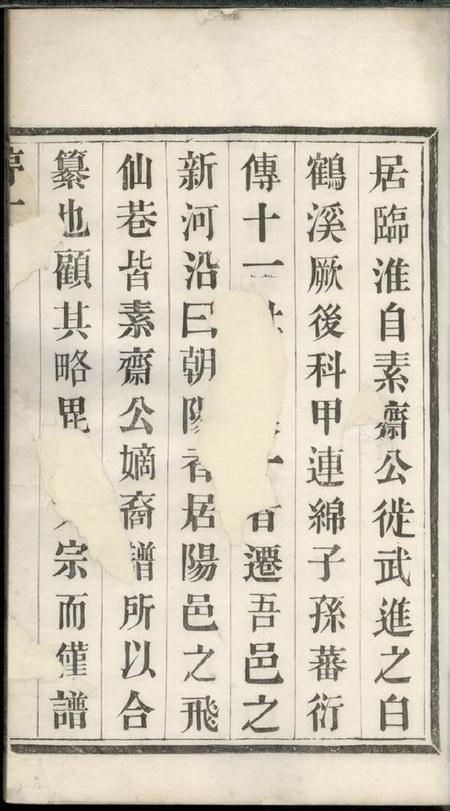 居臨淮自素齋公徙武進之白
鶴溪厥後科甲連綿子孫蕃衍
傳十一者遷吾邑之
新河沿曰朝陽者居陽邑之飛
仙巷皆素齋公嫡裔譜所以合
纂也顧其略毘宗而僅譜